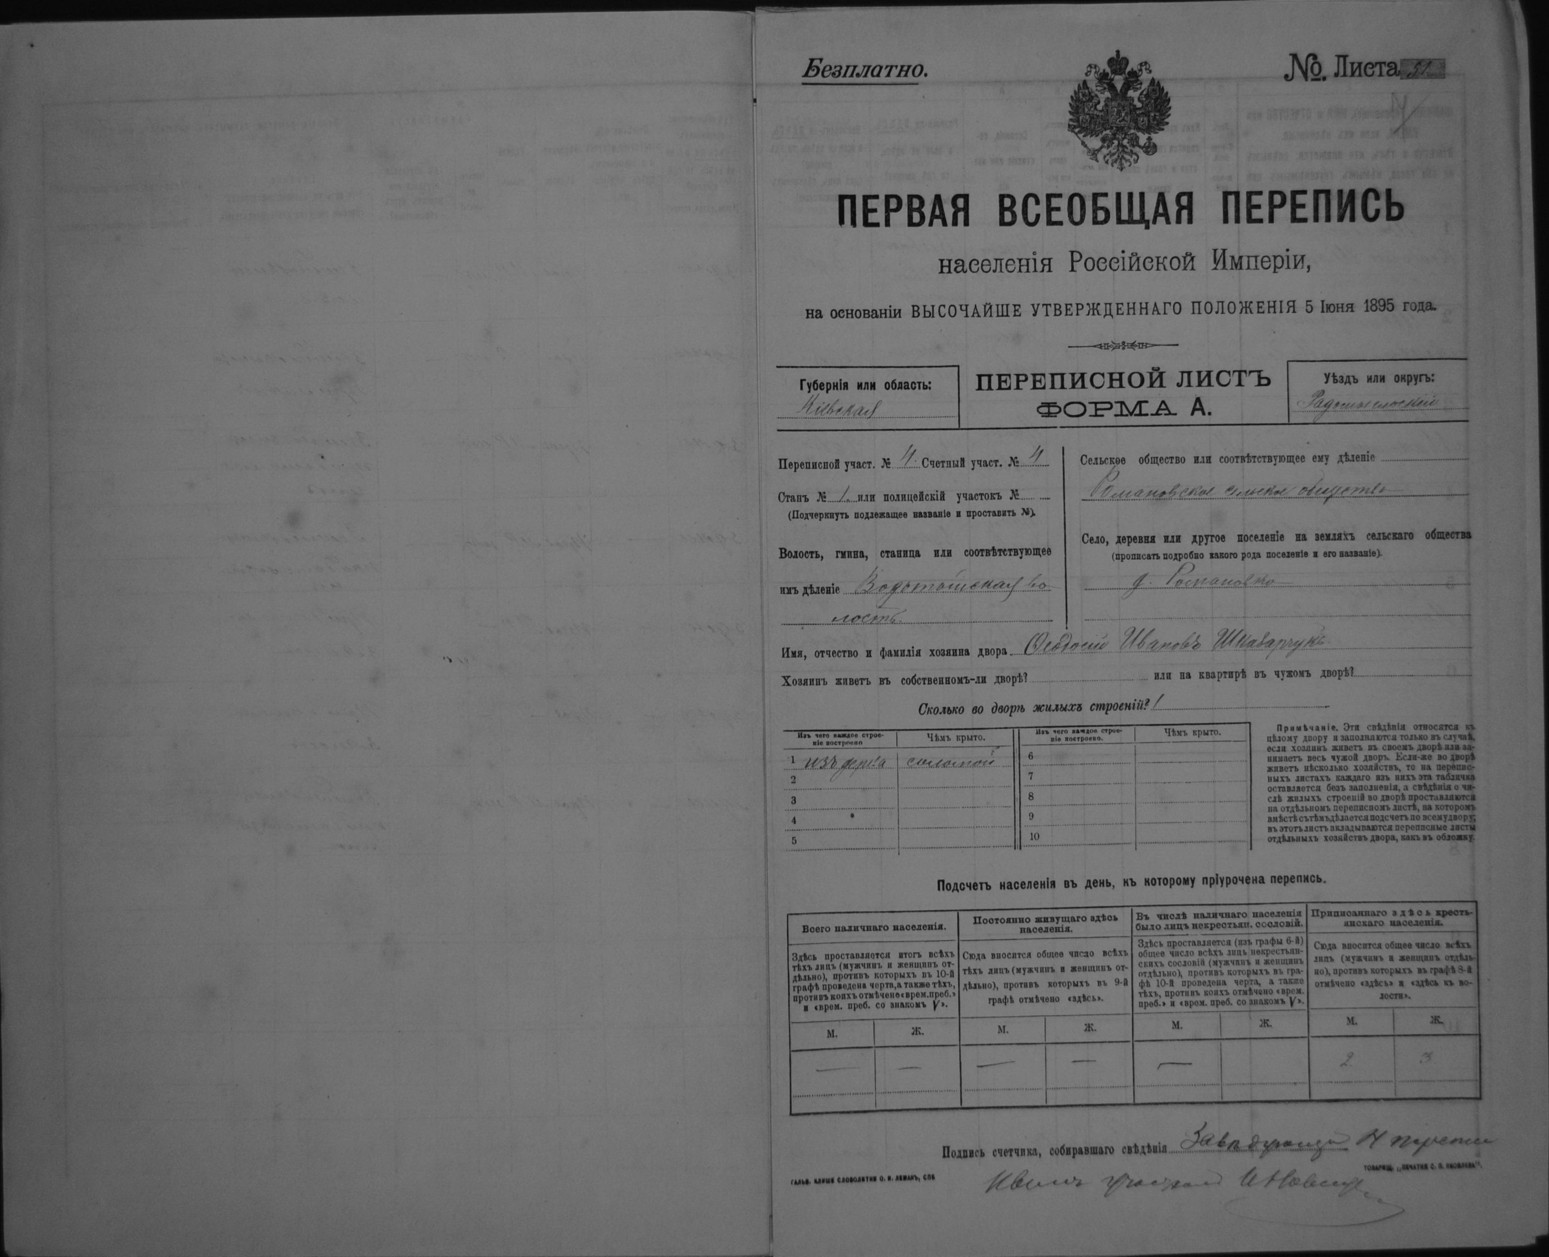 Безплатно.
№. Листа 51
ПЕРВАЯ ВСЕОБЩАЯ ПЕРЕПИСЬ
населенія Россійской Имперіи,
на основаніи ВЫСОЧАЙШЕ УТВЕРЖДЕННАГО ПОЛОЖЕНІЯ 5 Іюня 1895 года.
Губернія или область:
Кіевская
ПЕРЕПИСНОЙ ЛИСТЪ
ФОРМА А.
Уѣздъ или округъ:
Радомысльскій
Переписной участ. № 4. Счетный участ. № 4
Станъ № 1. или полицейскій участокъ №
(Подчеркнуть подлежащее названіе и проставить №).
Волость, гмина, станица или соотвѣтствующее
имъ дѣленіе Водотыйская во
лость.
Сельское общество или соотвѣтствующее ему дѣленіе
Романовское сельское общество
Село, деревня или другое поселеніе на земляхъ сельскаго общества
(прописать подробно какого рода поселеніе и его названіе).
д. Романовка
Имя, отчество и фамилія хозяина двора Ѳеодосій Ивановъ Шкаварчукъ
Хозяинъ живетъ въ собственномъ-ли дворѣ? или на квартирѣ въ чужомъ дворѣ?
Сколько во дворѣ жилыхъ строеній? 1
Изъ чего каждое строе-
ніе построено
Чѣмъ крыто.
Изъ чего каждое строе-
ніе построено.
Чѣмъ крыто.
1 изъ дерева соломой
2
3
4
5
6
7
8
9
10
Примѣчаніе. Эти свѣдѣнія относятся къ
цѣлому двору и заполняются только въ случаѣ,
если хозяинъ живетъ въ своемъ дворѣ или за-
нимаетъ весь чужой дворъ. Если-же во дворѣ
живетъ нѣсколько хозяйствъ, то на перепис-
ныхъ листахъ каждаго изъ нихъ эта табличка
оставляется безъ заполненія, а свѣдѣнія о чи-
слѣ жилыхъ строеній во дворѣ проставляются
на отдѣльномъ переписномъ листѣ, на которомъ
вмѣстѣ съ тѣмъ дѣлается подсчетъ по всему двору;
въ этотъ листъ вкладываются переписные листы
отдѣльныхъ хозяйствъ двора, какъ въ обложку.
Подсчетъ населенія въ день, къ которому пріурочена перепись.
Всего наличнаго населенія.
Здѣсь проставляется итогъ всѣхъ
тѣхъ лицъ (мужчинъ и женщинъ от-
дѣльно), противъ которыхъ въ 10-й
графѣ проведена черта, а также тѣхъ,
противъ коихъ отмѣчено «врем. преб.»
и «врем. преб. со знакомъ V».
М. Ж.
— —
Постоянно живущаго здѣсь
населенія.
Сюда вносится общее число всѣхъ
тѣхъ лицъ (мужчинъ и женщинъ от-
дѣльно), противъ которыхъ въ 9-й
графѣ отмѣчено «здѣсь».
М. Ж.
— —
Въ числѣ наличнаго населенія
было лицъ некрестьян. сословій.
Здѣсь проставляется (изъ графы 6-й)
общее число всѣхъ лицъ некрестьян-
скихъ сословій (мужчинъ и женщинъ
отдѣльно), противъ которыхъ въ гра-
фѣ 10-й проведена черта, а также
тѣхъ, противъ коихъ отмѣчено «врем.
преб.» и «врем. преб. со знакомъ V».
М. Ж.
—
Приписаннаго здѣсь кресть-
янскаго населенія.
Сюда вносится общее число всѣхъ
лицъ (мужчинъ и женщинъ отдѣль-
но), противъ которыхъ въ графѣ 8-й
отмѣчено «здѣсь» и «здѣсь въ во-
лости».
М. Ж.
2 3
Подпись счетчика, собиравшаго свѣдѣнія Завѣдующій 4 перепис
нымъ участкомъ
ГАЛЬВ. КЛИШЕ СЛОВОЛИТНИ О. И. ЛЕМАНЪ, СПБ
ТОВАРИЩ. „ПЕЧАТНЯ С. П. ЯКОВЛЕВА".